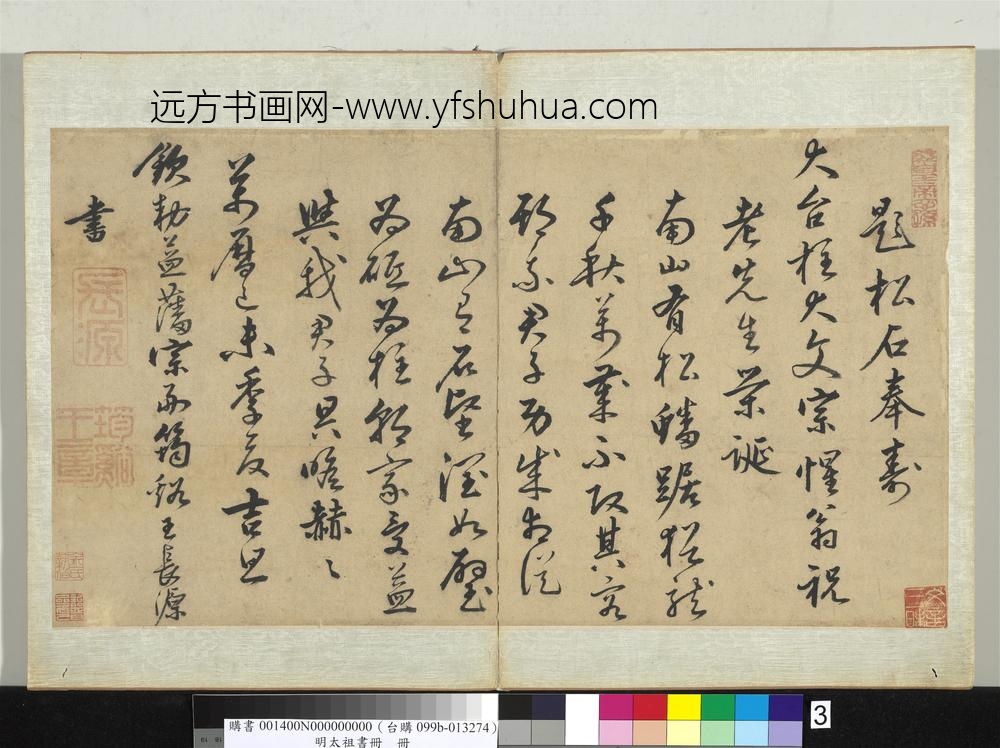 远方书画网-www.yfshuhua.com
題松石奉壽
大台柱大文宗惺翁祝
老先生榮誕
南山有松蟠踞猶龍
千秋萬葉不改其容
君子
南山有石堅潤如璧
為砥為柱邦家受益
與我君子具瞻赫〻
萬曆己未季夏吉旦
欽勅益藩宗雨筠谿王長源
書
長源
筠谿
王章
3
購書 001400N000000000(台購 099b-013274)
明太祖書冊 冊